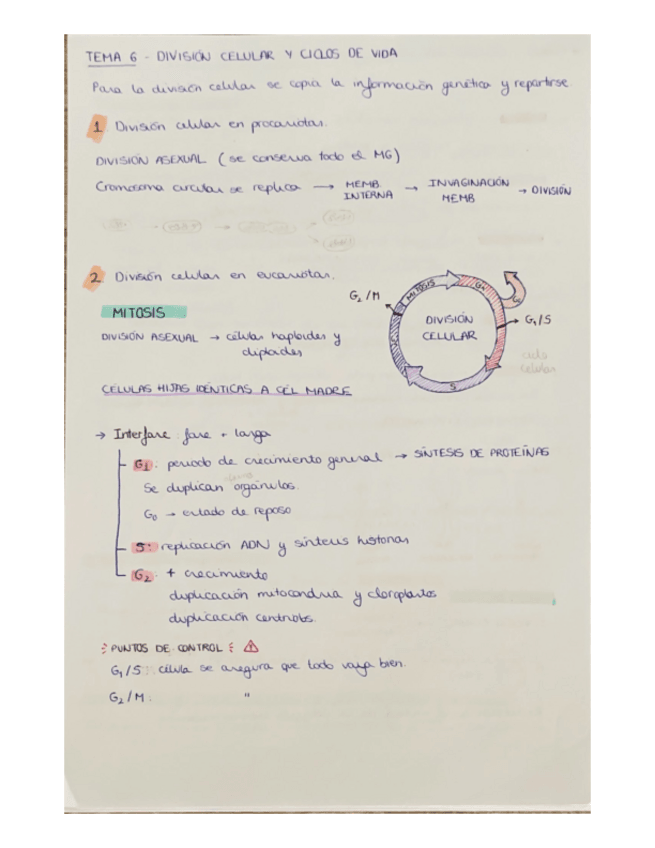 TEMA 6 - DIVISIÓN CELULAR Y CICLOS DE VIDA
Para la división celular se copia la información genética y repartirse
1 División celular en procariotas.
DIVISIÓN ASEXUAL (se conserva todo el MG)
Cromosoma circular se replica → MEMB. INTERNA → INVAGINACIÓN MEMB → DIVISIÓN
2 División celular en eucariotas.
MITOSIS
DIVISIÓN ASEXUAL → células haploides y
diploides
CÉLULAS HIJAS IDÉNTICAS A CÉL MADRE
G2/M
MITOSIS
G1
G0
DIVISIÓN
CELULAR
G1/S
S
ciclo
celular
→ Interfase: fase + larga
G1: periodo de crecimiento general → SÍNTESIS DE PROTEÍNAS
Se duplican orgánulos.
G0 → estado de reposo
S: replicación ADN y síntesis histonas
G2: + crecimiento
duplicación mitocondria y cloroplastos
duplicación centriolos.
PUNTOS DE CONTROL
G1/S: célula se asegura que todo vaya bien.
G2/M: "